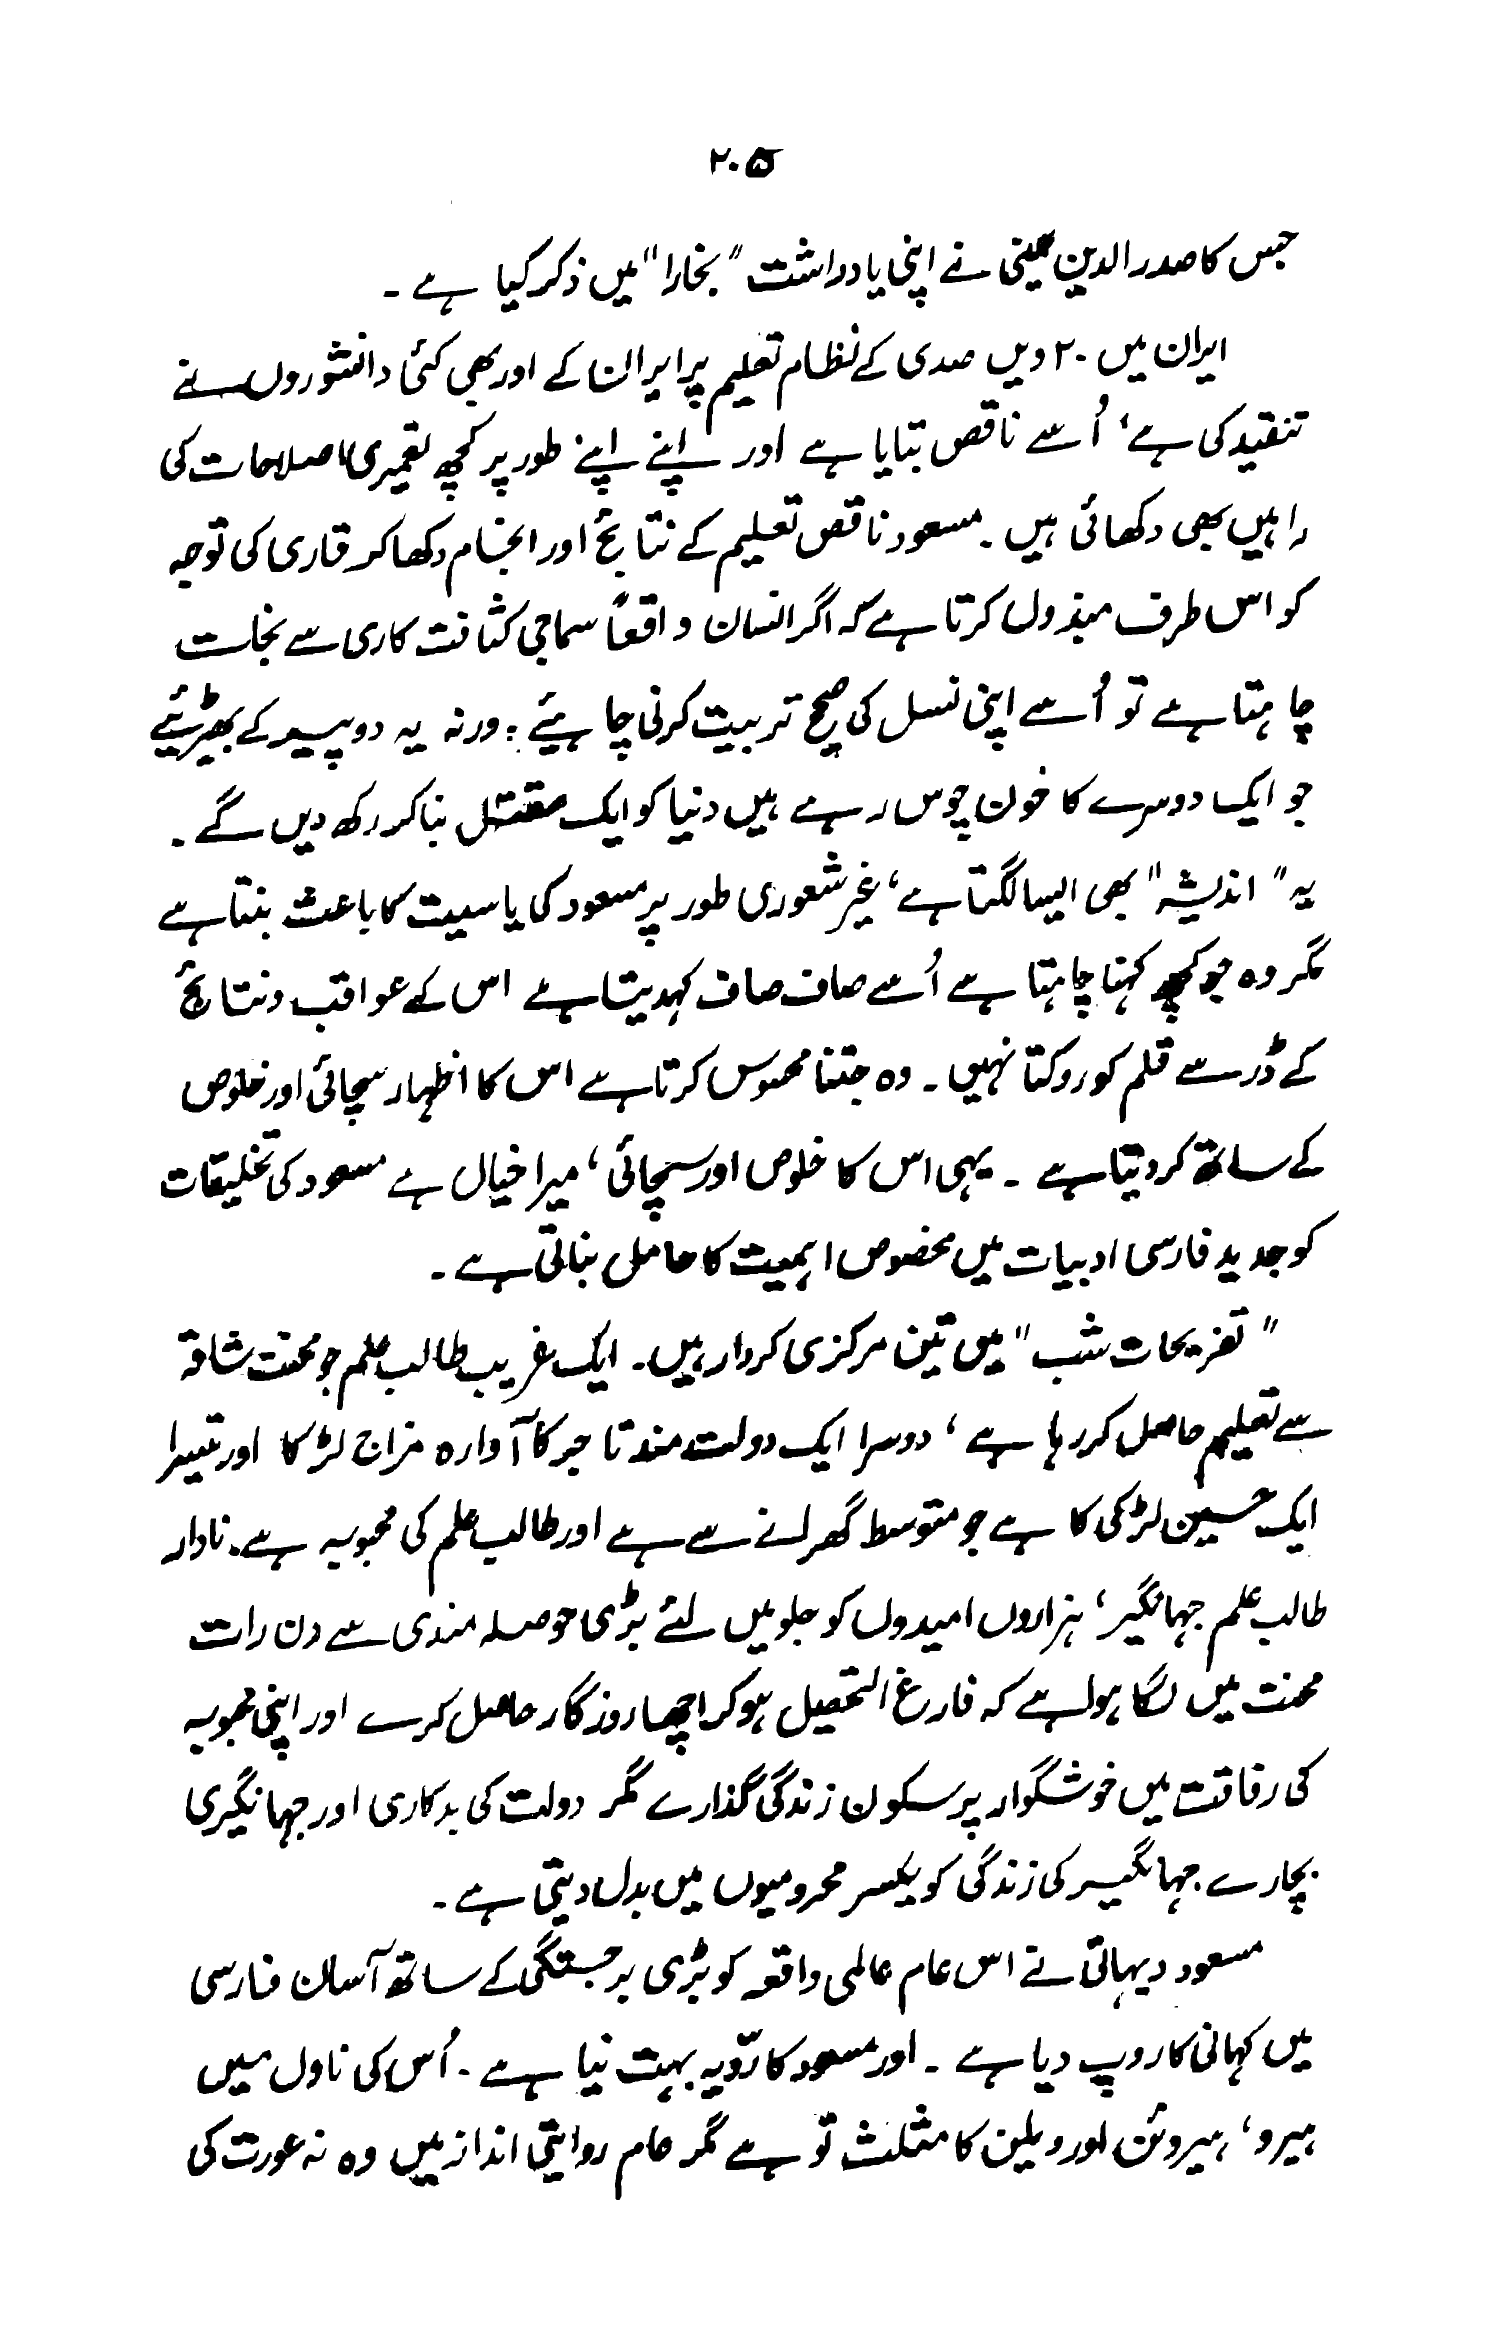 ۲۰۵
جس کا صدر الدین عینی نے اپنی یادداشت "بخارا" میں ذکر کیا ہے۔
ایران میں ۲۰ ویں صدی کے نظام تعلیم پر ایران کے اور بھی کئی دانشوروں نے
تنقید کی ہے، اُسے ناقص بتایا ہے اور اپنے اپنے طور پر کچھ تعمیری اصلاحات کی
راہیں بھی دکھائی ہیں۔ مسعود ناقص تعلیم کے نتائج اور انجام دکھا کر قاری کی توجہ
کو اس طرف مبذول کرتا ہے کہ اگر انسان واقعاً سماجی کثافت کاری سے نجات
چاہتا ہے تو اُسے اپنی نسل کی صحیح تربیت کرنی چاہیئے: ورنہ یہ دو پیر کے بھیڑیئے
جو ایک دوسرے کا خون چوس رہے ہیں دنیا کو ایک مقتل بنا کر رکھ دیں گے۔
یہ "اندیشہ" بھی ایسا لگتا ہے، غیر شعوری طور پر مسعود کی یاسیت کا باعث بنتا ہے
مگر وہ جو کچھ کہنا چاہتا ہے اُسے صاف صاف کہدیتا ہے اس کے عواقب و نتائج
کے ڈر سے قلم کو روکتا نہیں۔ وہ جتنا محسوس کرتا ہے اس کا اظہار سچائی اور خلوص
کے ساتھ کر دیتا ہے۔ یہی اس کا خلوص اور سچائی، میرا خیال ہے مسعود کی تخلیقات
کو جدید فارسی ادبیات میں مخصوص اہمیت کا حامل بناتی ہے۔
"تفریحات شب" میں تین مرکزی کردار ہیں۔ ایک غریب طالب علم جو محنت شاقہ
سے تعلیم حاصل کر رہا ہے، دوسرا ایک دولت مند تاجر کا آوارہ مزاج لڑکا اور تیسرا
ایک حسین لڑکی کا ہے جو متوسط گھرانے سے ہے اور طالب علم کی محبوبہ ہے۔ نادار
طالب علم جہانگیر، ہزاروں امیدوں کو جلو میں لئے بڑی حوصلہ مندی سے دن رات
محنت میں لگا ہوا ہے کہ فارغ التحصیل ہو کر اچھا روزگار حاصل کرے اور اپنی محبوبہ
کی رفاقت میں خوشگوار پر سکون زندگی گذارے مگر دولت کی بدکاری اور جہانگیری
بچارے جہانگیر کی زندگی کو یکسر محرومیوں میں بدل دیتی ہے۔
مسعود دیہاتی نے اس عام عالمی واقعہ کو بڑی برجستگی کے ساتھ آسان فارسی
میں کہانی کا روپ دیا ہے۔ اور مسعود کا رّویہ بہت نیا ہے۔ اُس کی ناول میں
ہیرو، ہیروئن اور ویلن کا مثلث تو ہے مگر عام روایتی انداز میں وہ نہ عورت کی